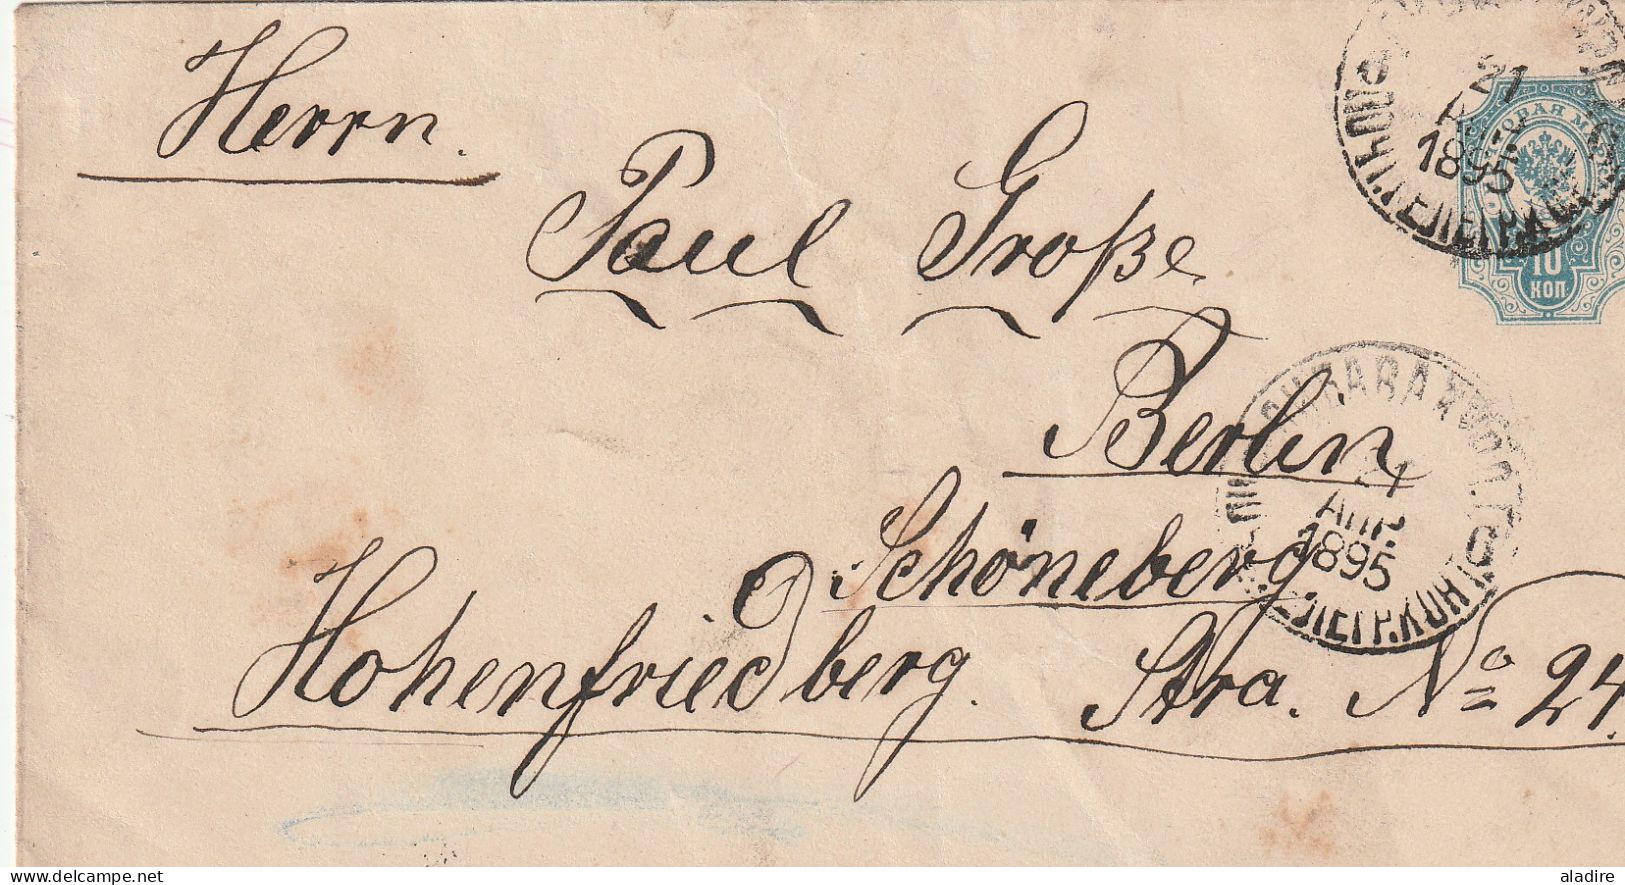 Herrn.
Paul Große
Berlin
Schöneberg.
Hohenfriedberg. Stra. No 24.
21
АПР.
1895
ПОЧТОВАЯ МАРКА
10
КОП.
АПР.
1895
delcampe.net
aladire